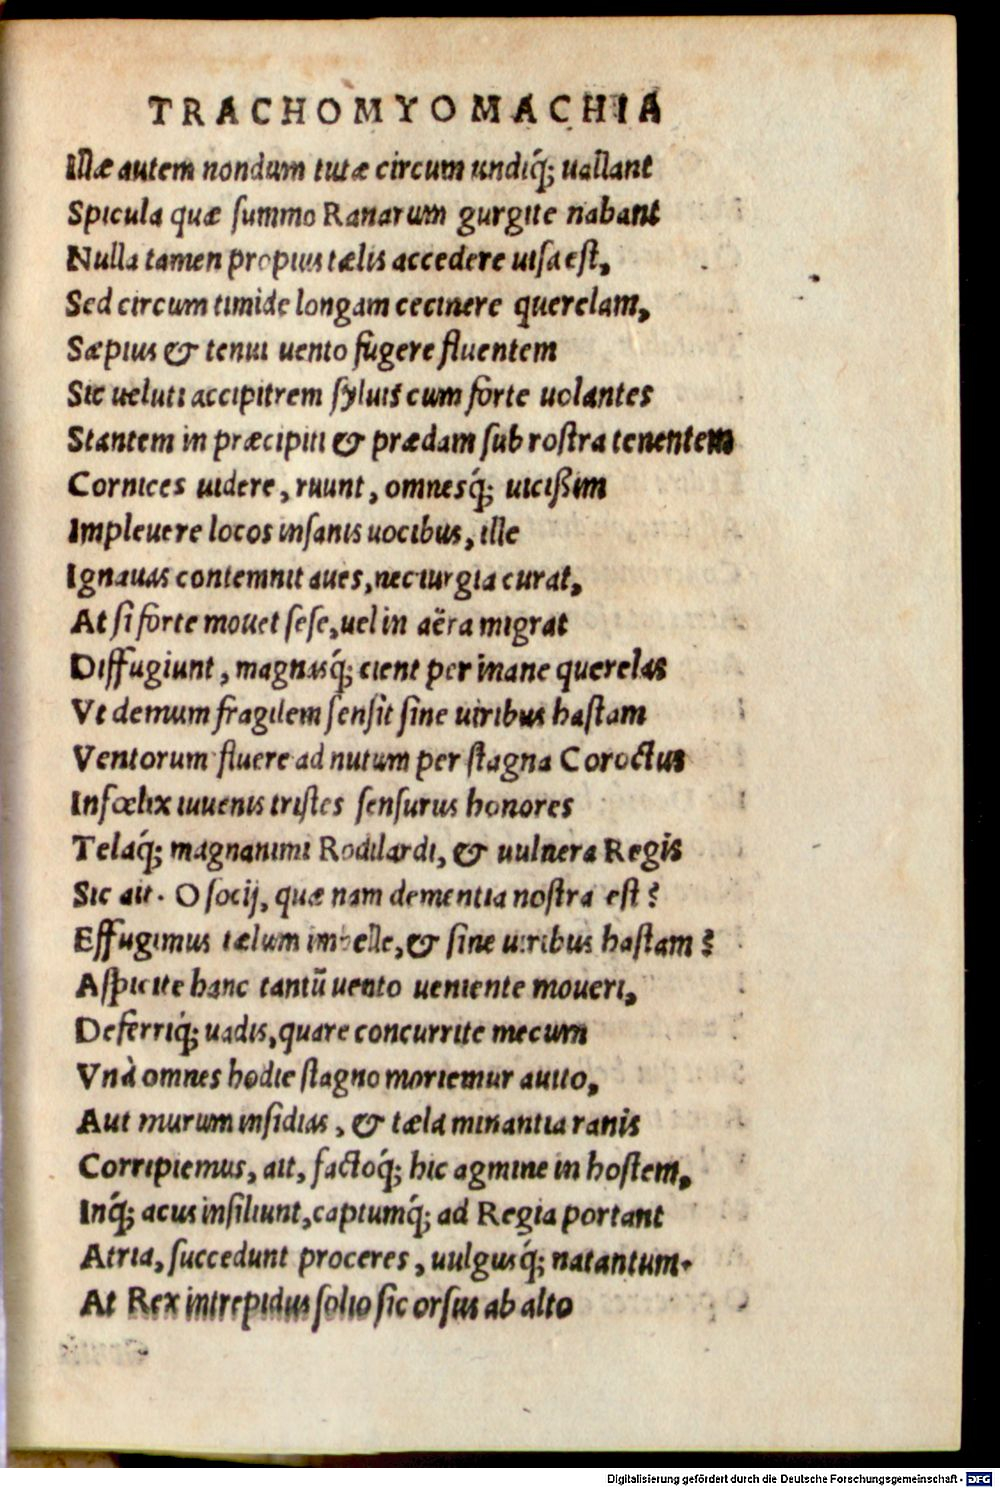 TRACHOMYOMACHIA
Illæ autem nondum tutæ circum undiq́; uallant
Spicula quæ summo Ranarum gurgite nabant
Nulla tamen propius tælis accedere uisa est,
Sed circum timide longam cecinere querelam,
Sæpius & tenui uento fugere fluentem
Sic ueluti accipitrem syluis cum forte uolantes
Stantem in præcipiti & prædam sub rostra tenentem
Cornices uidere, ruunt, omnesq́; uicißim
Impleuere locos insanis uocibus, ille
Ignauas contemnit aues, nec iurgia curat,
At si forte mouet sese, uel in aëra migrat
Diffugiunt, magnasq́; cient per inane querelas
Vt demum fragilem sensit sine uiribus hastam
Ventorum fluere ad nutum per stagna Coroctus
Infœlix iuuenis tristes sensurus honores
Telaq́; magnanimi Rodilardi, & uulnera Regis
Sic ait. O socij, quæ nam dementia nostra est?
Effugimus tælum imbelle, & sine uiribus hastam?
Aspicite hanc tantū uento ueniente moueri,
Deferriq́; uadis, quare concurrite mecum
Vnà omnes hodie stagno moriemur auito,
Aut murum insidias, & tæla minantia ranis
Corripiemus, ait, factoq́; hic agmine in hostem,
Inq́; acus insiliunt, captumq́; ad Regia portant
Atria, succedunt proceres, uulgusq́; natantum.
At Rex intrepidus solio sic orsus ab alto
Digitalisierung gefördert durch die Deutsche Forschungsgemeinschaft - DFG